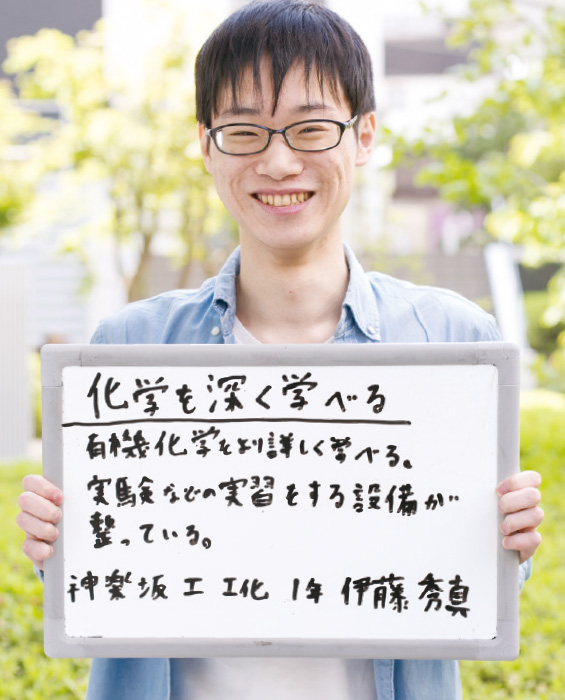 化学を深く学べる
有機化学をより詳しく学べる。
実験などの実習をする設備が
整っている。
神楽坂 工 工化 1年 伊藤秀真